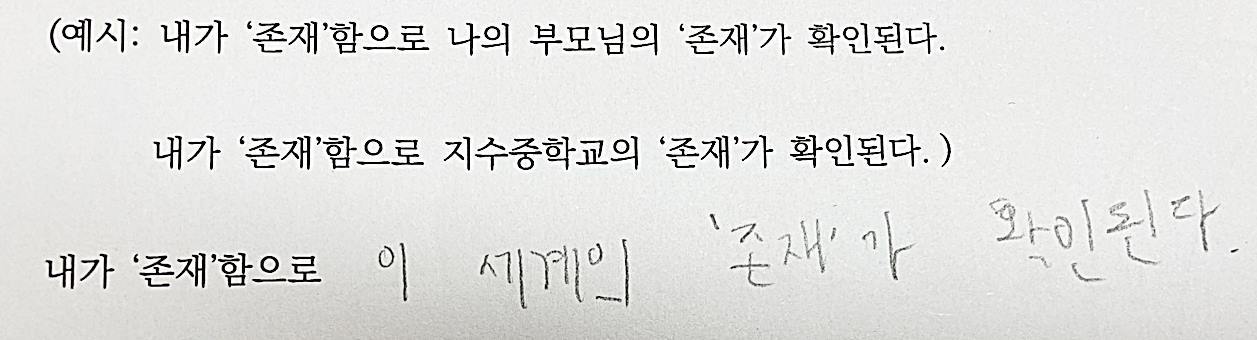 (예시: 내가 ‘존재’함으로 나의 부모님의 ‘존재’가 확인된다.
내가 ‘존재’함으로 지수중학교의 ‘존재’가 확인된다. )
내가 ‘존재’함으로 이 세계의 ‘존재’가 확인된다.